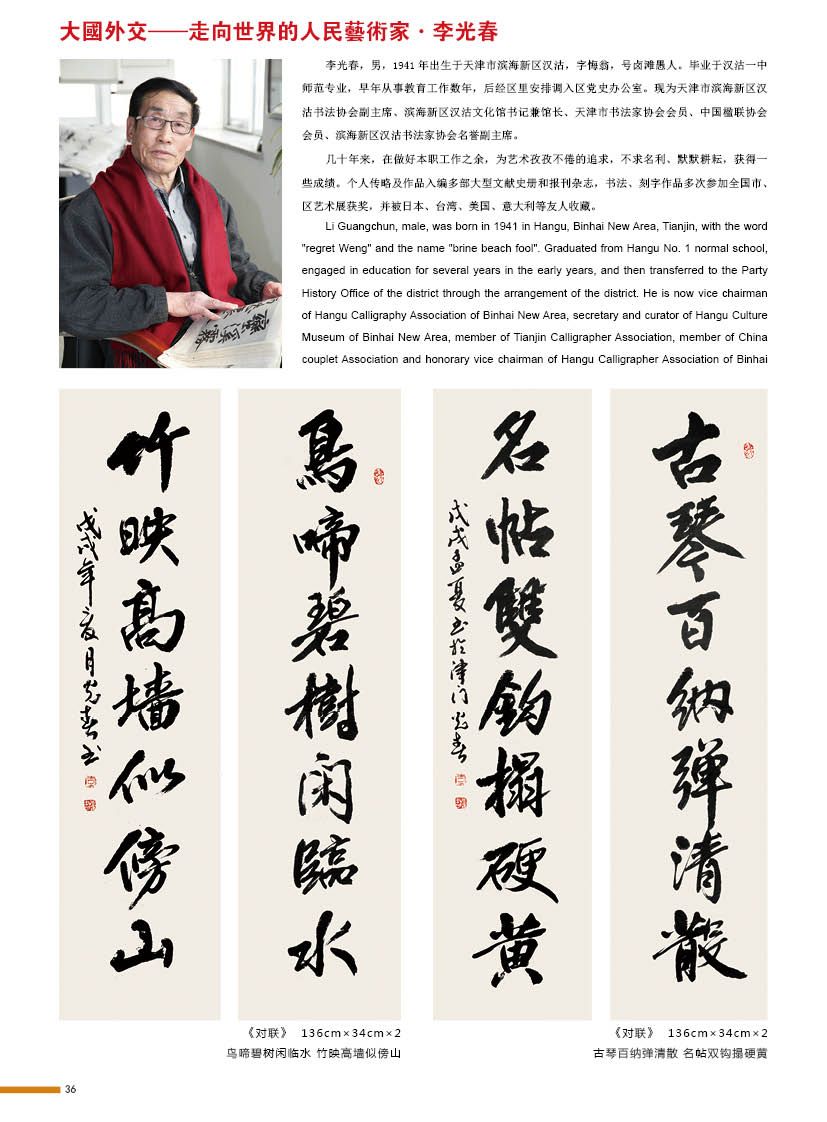 大國外交——走向世界的人民藝術家·李光春
李光春，男，1941 年出生于天津市滨海新区汉沽，字悔翁，号卤滩愚人。毕业于汉沽一中
师范专业，早年从事教育工作数年，后经区里安排调入区党史办公室。现为天津市滨海新区汉
沽书法协会副主席、滨海新区汉沽文化馆书记兼馆长、天津市书法家协会会员、中国楹联协会
会员、滨海新区汉沽书法家协会名誉副主席。
几十年来，在做好本职工作之余，为艺术孜孜不倦的追求，不求名利、默默耕耘，获得一
些成绩。个人传略及作品入编多部大型文献史册和报刊杂志，书法、刻字作品多次参加全国市、
区艺术展获奖，并被日本、台湾、美国、意大利等友人收藏。
Li Guangchun, male, was born in 1941 in Hangu, Binhai New Area, Tianjin, with the word
"regret Weng" and the name "brine beach fool". Graduated from Hangu No. 1 normal school,
engaged in education for several years in the early years, and then transferred to the Party
History Office of the district through the arrangement of the district. He is now vice chairman
of Hangu Calligraphy Association of Binhai New Area, secretary and curator of Hangu Culture
Museum of Binhai New Area, member of Tianjin Calligrapher Association, member of China
couplet Association and honorary vice chairman of Hangu Calligrapher Association of Binhai
古琴百纳弹清散
名帖雙鈎搨硬黄
戊戌孟夏书於津门光春
鳥啼碧樹闲臨水
竹映高墙似傍山
戊戌年夏月光春书
《对联》 136cm×34cm×2
鸟啼碧树闲临水 竹映高墙似傍山
《对联》 136cm×34cm×2
古琴百纳弹清散 名帖双钩搨硬黄
36